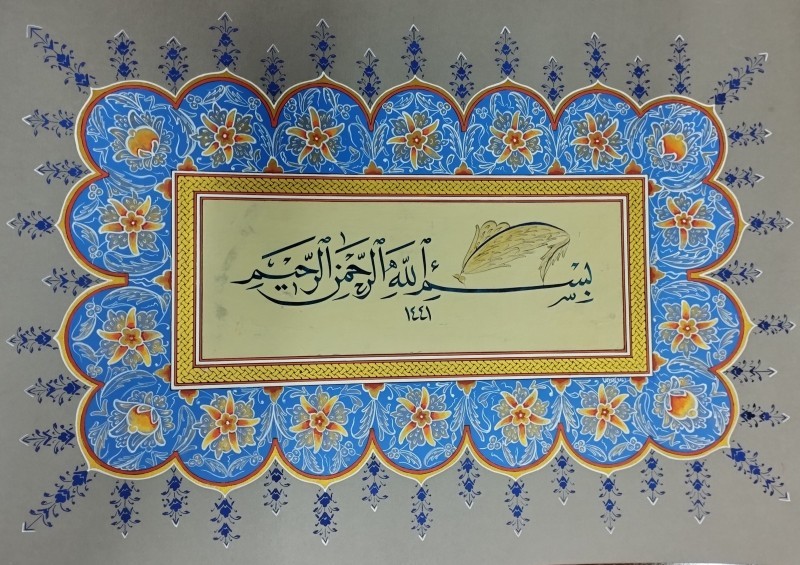 بِسْمِ ٱللَّهِ ٱلرَّحْمَٰنِ ٱلرَّحِيمِ
١٤٤١